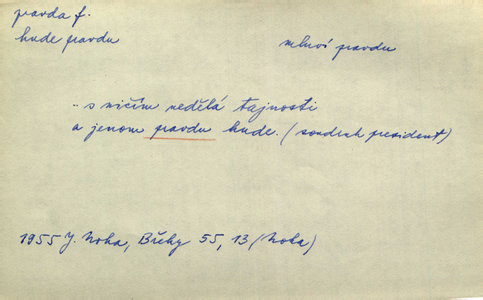 pravda f.
hude pravdu
mluví pravdu
.. s ničím nedělá tajnosti
a jenom pravdu hude. (soudruh president)
1955 J. Noha, Břehy 55, 13 (Nota)